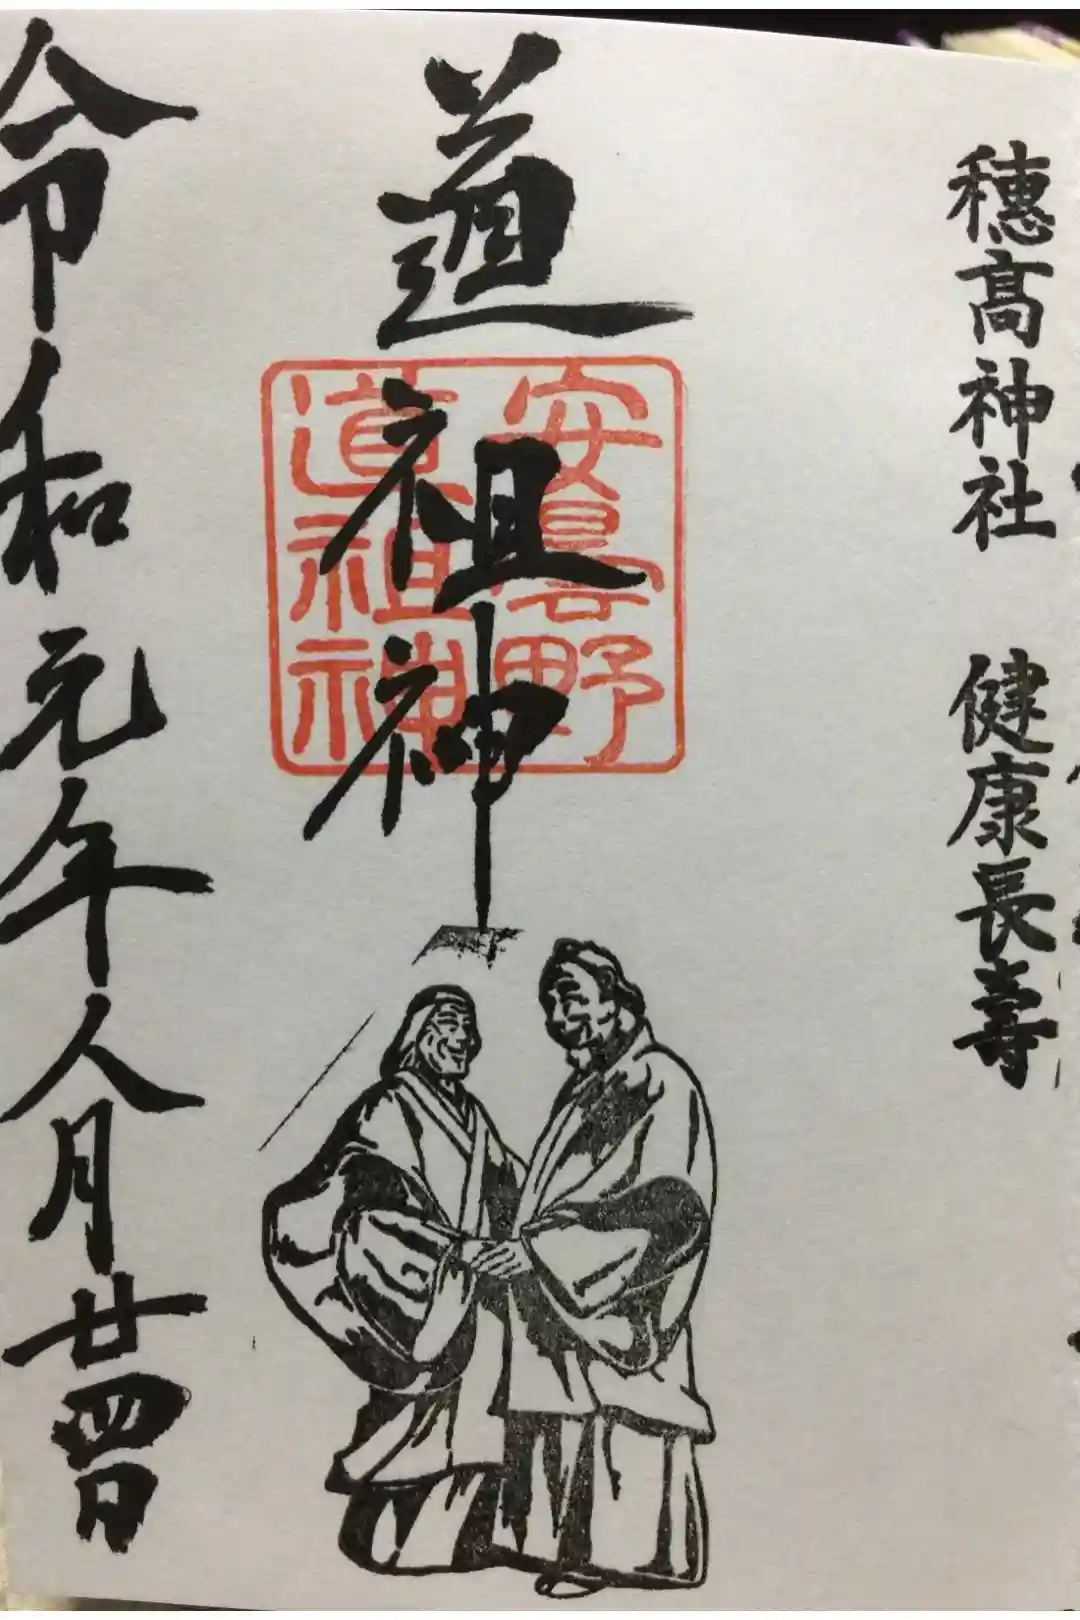 穂髙神社 健康長壽
道祖神
安曇野
道祖神
令和元年八月廿四日